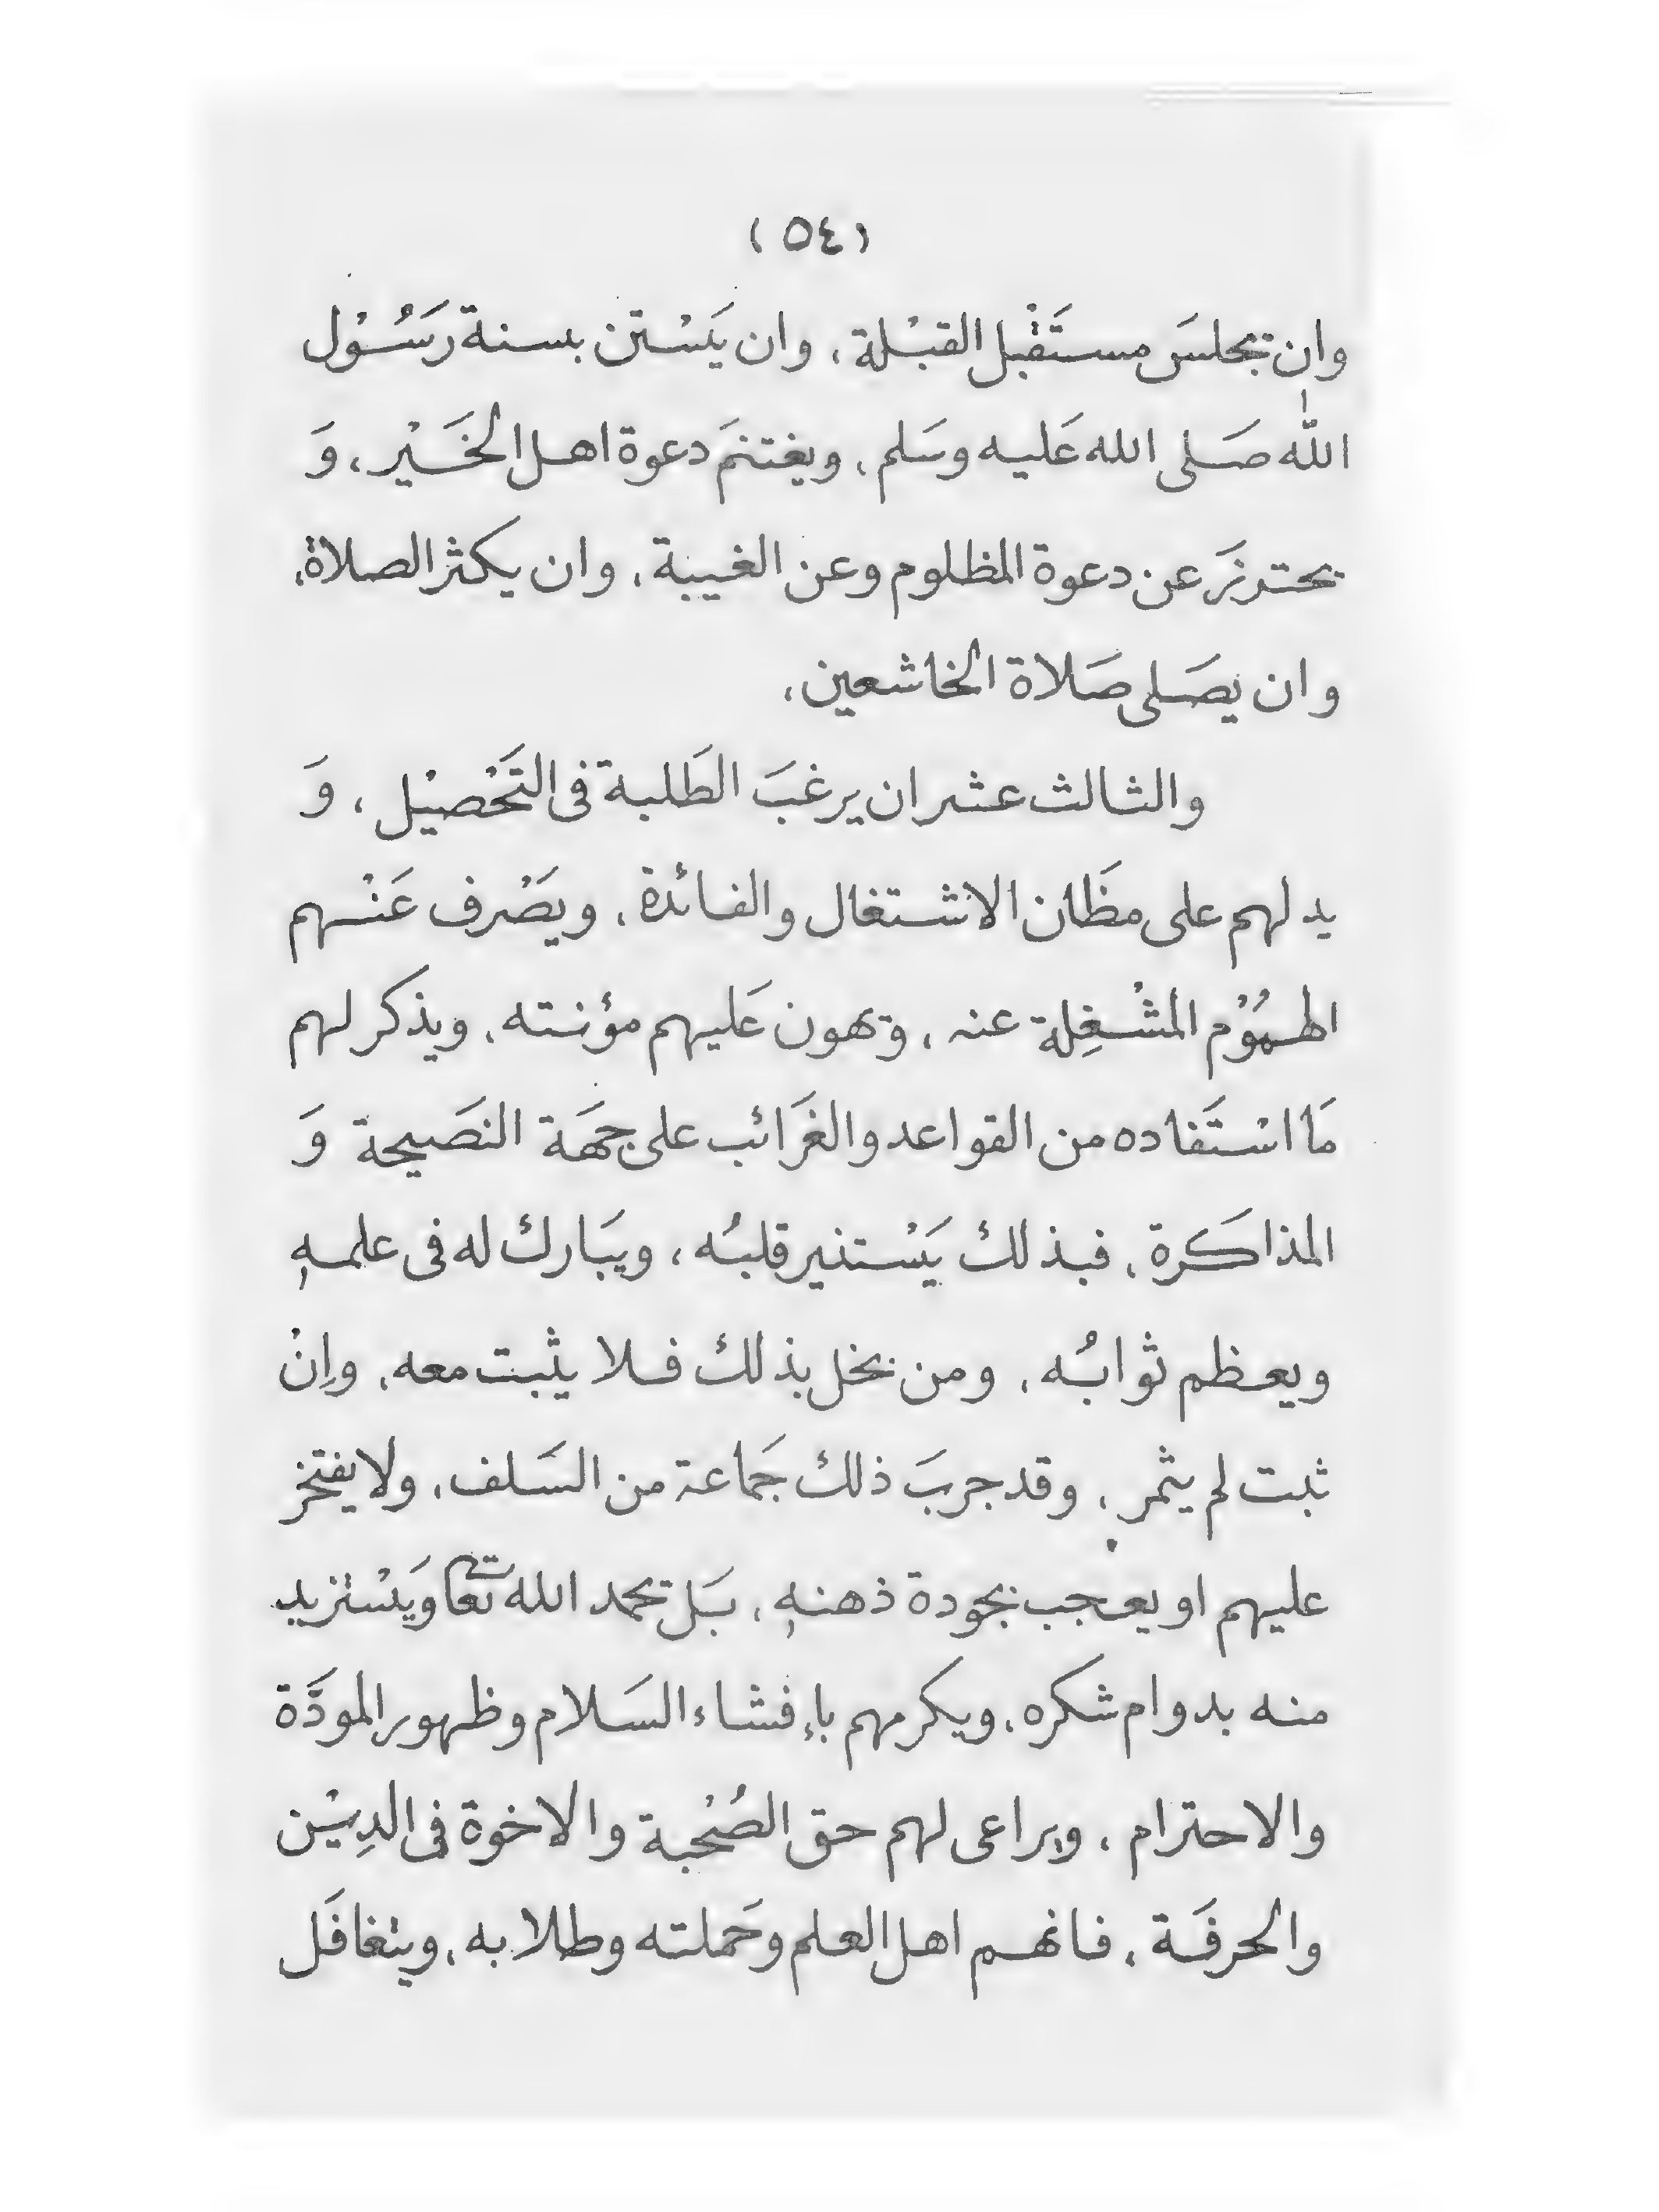 (٥٤)
وان يجلسَ مستَقْبل القبْلة، وان يَسْتن بسنة رَسُوْل
الله صَلى الله عَليه وسَلم، ويغتنمَ دعوة اهل الخَيْر، وَ
يحترزَ عن دعوة المظلوم وعن الغيبة، وان يكثر الصلاة،
وان يصَلى صَلاة الخاشعين،
والثالث عشر ان يرغبَ الطَلبة فى التَحْصيْل، وَ
يدلهم على مظَان الاشتغال والفائدة، ويصْرف عَنْهم
الهمُوْم المشْغِلة عنه، ويهون عَليهم مؤنته، ويذكر لهم
مَا اسْتَفاده من القواعد والغَرَائب على جهَة النصَيحة وَ
المذاكَرة، فبذلك يَسْتنير قلبُه، ويبَارك له فى علمهِ
ويعظم ثوابُه، ومن بخل بذلك فلا يثبت معه، وإنْ
ثبت لم يثمر، وقد جربَ ذلك جَماعة من السَلف، ولا يفتخر
عليهم او يعجب بجودة ذهنهِ، بَل يحمد الله تعا ويَسْتزيد
منه بدوام شكره، ويكرمهم بإفشاء السَلام وظهور المودَّة
والاحترام، ويراعى لهم حق الصُحْبة والاخوة فى الدِيْن
والحرفَة، فانهم اهل العلم وحَملته وطلابه، ويتغافَل